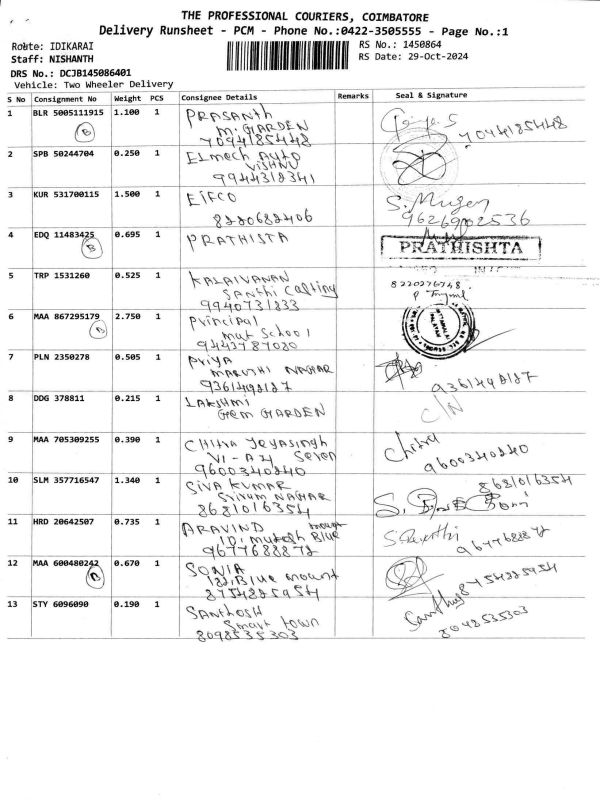 THE PROFESSIONAL COURIERS, COIMBATORE
Delivery Runsheet - PCM - Phone No.:0422-3505555 - Page No.:1
Route: IDIKARAI
Staff: NISHANTH
DRS No.: DCJB145086401
Vehicle: Two Wheeler Delivery
RS No.: 1450864
RS Date: 29-Oct-2024
S No Consignment No Weight PCS Consignee Details Remarks Seal & Signature
1 BLR 5005111915 1.100 1 PRASANTH
B M. GARDEN
7094185448 7094185448
2 SPB 50244704 0.250 1 Elmech Auto
VISHNU
9944312341
3 KUR 531700115 1.500 1 EIFCO S. Mugen
8220682406 9626902536
4 EDQ 11483425 0.695 1 PRATHISTA
B PRATHISHTA
5 TRP 1531260 0.525 1 KALAIVANAN
Santhi Casting 8220276748
9940731833
6 MAA 867295179 2.750 1 Principal
B mat School
9443787020
7 PLN 2350278 0.505 1 Priya
MARUTHI NAGAR
9361498187 9361498187
8 DDG 378811 0.215 1 LAKSHMI C/N
Gem GARDEN
9 MAA 705309255 0.390 1 Chitra Jeyasingh Chitra
VI-A24 Seren
9600340840 9600340840
10 SLM 357716547 1.340 1 SIVA KUMAR
Srivum NAGAR
8681016354 8681016354
11 HRD 20642507 0.735 1 ARAVIND mount
10, Blue
9677688872 9677688872
12 MAA 600480242 0.670 1 SONIA
B 122, Blue mount
8754825954 8754825954
13 STY 6096090 0.190 1 Santhosh Santhosh
Smart town
8098535303 8098535303